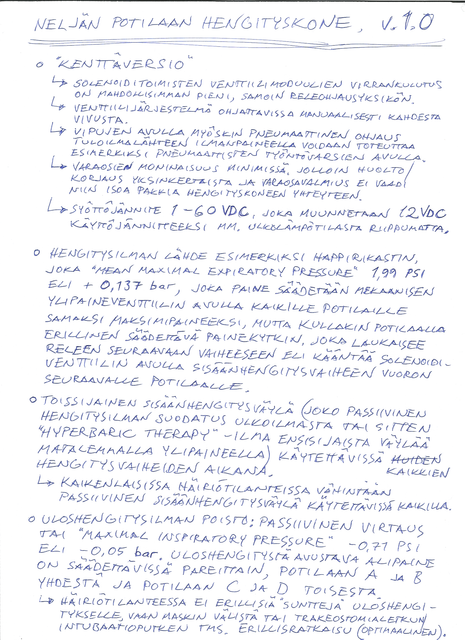 NELJÄN POTILAAN HENGITYSKONE, v.1.0
o "KENTTÄVERSIO"
↳ SOLENOIDITOIMISTEN VENTTIILIMODUULIEN VIRRANKULUTUS
ON MAHDOLLISIMMAN PIENI, SAMOIN RELEOHJAUSYKSIKÖN.
↳ VENTTIILIJÄRJESTELMÄ OHJATTAVISSA MANUAALISESTI KAHDESTA
VIVUSTA.
↳ VIPUJEN AVULLA MYÖSKIN PNEUMAATTINEN OHJAUS
TULOILMALÄHTEEN ILMANPAINEELLA VOIDAAN TOTEUTTAA
ESIMERKIKSI PNEUMAATTISTEN TYÖNTÖVARSIEN AVULLA.
↳ VARAOSIEN MONINAISUUS MINIMISSÄ, JOLLOIN HUOLTO/
KORJAUS YKSINKERTAISTA JA VARAOSAVALMIUS EI VAADI
NIIN ISOA PAKKIA HENGITYSKONEEN YHTEYTEEN.
↳ SYÖTTÖJÄNNITE 1-60 VDC, JOKA MUUNNETAAN 12VDC
KÄYTTÖJÄNNITTEEKSI MM. ULKOLÄMPÖTILASTA RIIPPUMATTA.
o HENGITYSILMAN LÄHDE ESIMERKIKSI HAPPIRIKASTIN,
JOKA "MEAN MAXIMAL EXPIRATORY PRESSURE" 1,99 PSI
ELI +0,137 bar, JOKA PAINE SÄÄDETÄÄN MEKAANISEN
YLIPAINEVENTTIILIN AVULLA KAIKILLE POTILAILLE
SAMAKSI MAKSIMIPAINEEKSI, MUTTA KULLAKIN POTILAALLA
ERILLINEN SÄÄDETTÄVÄ PAINEKYTKIN, JOKA LAUKAISEE
RELEEN SEURAAVAAN VAIHEESEEN ELI KÄÄNTÄÄ SOLENOIDI-
VENTTIILIN AVULLA SISÄÄNHENGITYSVAIHEEN VUORON
SEURAAVALLE POTILAALLE.
o TOISSIJAINEN SISÄÄNHENGITYSVÄYLÄ (JOKO PASSIIVINEN
HENGITYSILMAN SUODATUS ULKOILMASTA TAI SITTEN
"HYPERBARIC THERAPY"-ILMA ENSISIJAISTA VÄYLÄÄ
MATALEMMALLA YLIPAINEELLA) KÄYTETTÄVISSÄ HUIDEN
HENGITYSVAIHEIDEN AIKANA. KAIKKIEN
↳ KAIKENLAISISSA HÄIRIÖTILANTEISSA VÄHINTÄÄN
PASSIIVINEN SISÄÄNHENGITYSVÄYLÄ KÄYTETTÄVISSÄ KAIKILLA.
o ULOSHENGITYSILMAN POISTO: PASSIIVINEN VIRTAUS
TAI "MAXIMAL INSPIRATORY PRESSURE" -0,71 PSI
ELI -0,05 bar. ULOSHENGITYSTÄ AVUSTAVA ALIPAINE
ON SÄÄDETTÄVISSÄ PAREITTAIN, POTILAAN A JA B
YHDESTÄ JA POTILAAN C JA D TOISESTA.
↳ HÄIRIÖTILANTEESSA EI ERILLISIÄ "SUNTTEJA" ULOSHENGI-
TYKSELLE, VAAN MASKIN VÄLISTÄ TAI TRAKEOSTOMIALETKUN/
INTUBAATIOPUTKEN TMS. ERILLISRATKAISU (OPTIMAALINEN).